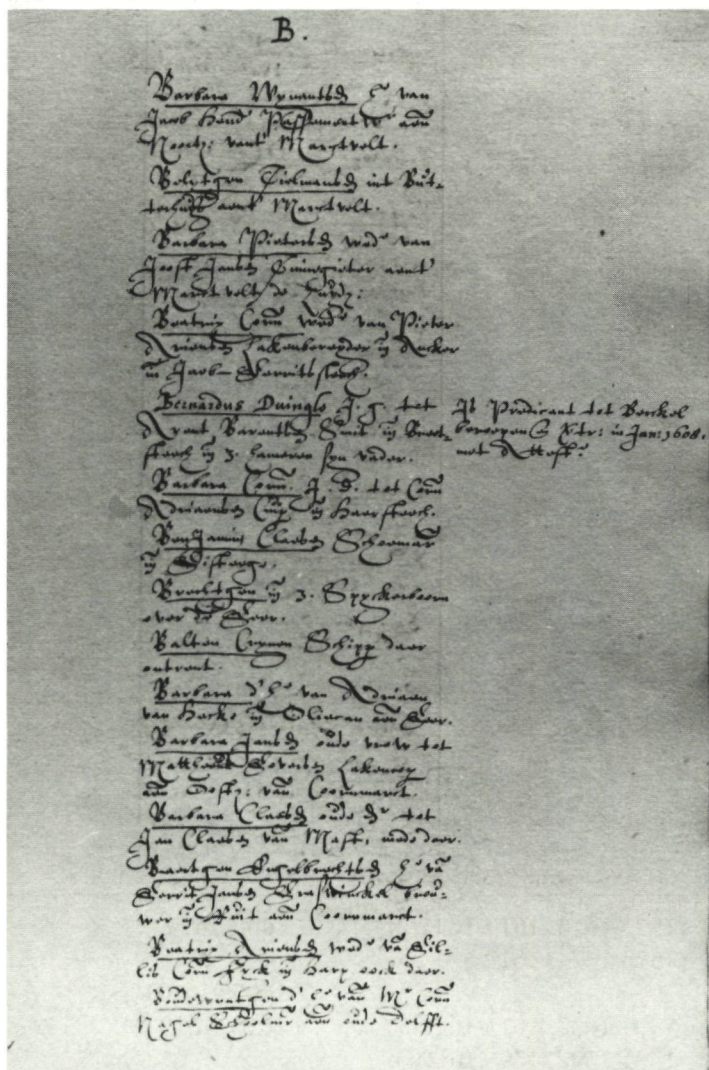 B.
Barbara Wynantsdr h. van
Jacob Hend. Passement w. aen
Noortz: vant Marctvelt.
Belytgen Tielmansdr int But-
terhuys aent Marctvelt.
Barbara Pietersdr wed.e van
Joost Jansen Tinnegieter aent
Marctvelt de
Beatrix Corn wed.e van Pieter
Ariensen Lakenbereyder in Ancker
in Jacob Gerritsstech.
Bernardus Duinglo J. g. tot
Arent Barentsen Smit in Broer-
stech in 3. hameren syn vader.
Is Predicant tot Berckel
beroepen in Jan: 1608.
met Attest.
Barbara Corn. J. d. tot Corn
Adriaensen in Haerstech.
Benjamin Claesen Schoemaker
in
Brechtgen in 3. Spyckerboorn
over de Geer.
Balten Crynen Schipp daer
ontrent.
Barbara d' h.e van Adriaen
van Hecke in Oliecan aen Geer.
Barbara Jansdr oude vrow tot
Mattheus Goverts Lakencoop
aen Oostz: van Coornmarct.
Barbara Claesdr oude dr tot
Jan Claesen van Mast, mede daer.
Baertgen Engelbrechtsdr h.e van
Gerrit Jansen Graswinckel brou-
wer in Ruit aen Coornmarct.
Beatrix Ariensdr wed.e van Gil-
lis Corn Eyck in Harp oock daer.
d' h.e van Mr Corn
Nagel Schoolmr aen oude Delfft.